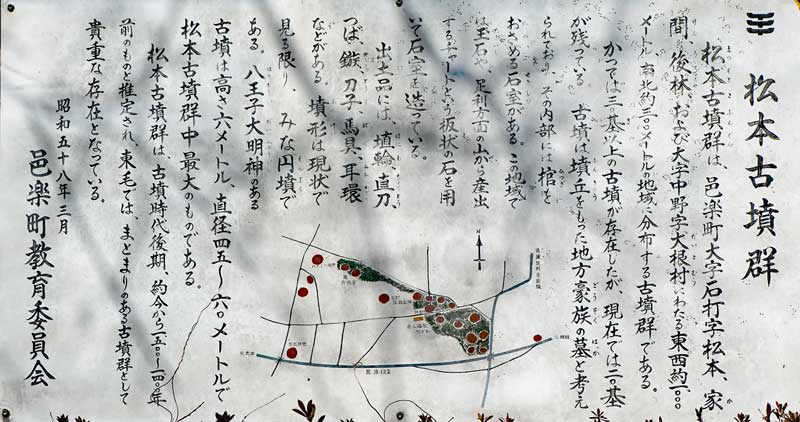 松本古墳群
松本古墳群は、邑楽町大字石打字松本、家
間、後林、および大字中野字大根村にわたる東西約一〇〇〇
メートル、南北約二〇〇メートルの地域に分布する古墳群である。
かつては三〇基以上の古墳が存在したが、現在では二〇基
が残っている。古墳は墳丘をもった地方豪族の墓と考え
られており、その内部には棺を
おさめる石室がある。この地域で
は玉石や、足利方面の山から産出
するチャートという板状の石を用
いて石室を造っている。
出土品には、埴輪、直刀、
つば、鏃、刀子、馬具、耳環
などがある。墳形は現状で
見る限り、みな円墳で
ある。八王子大明神のある
古墳は高さ六メートル、直径四五〜六〇メートルで
松本古墳群中最大のものである。
松本古墳群は、古墳時代後期、約今から一五〇〇〜一四〇〇年
前のものと推定され、東毛では、まとまりのある古墳群として
貴重な存在となっている。
昭和五十八年三月
邑楽町教育委員会
国道122